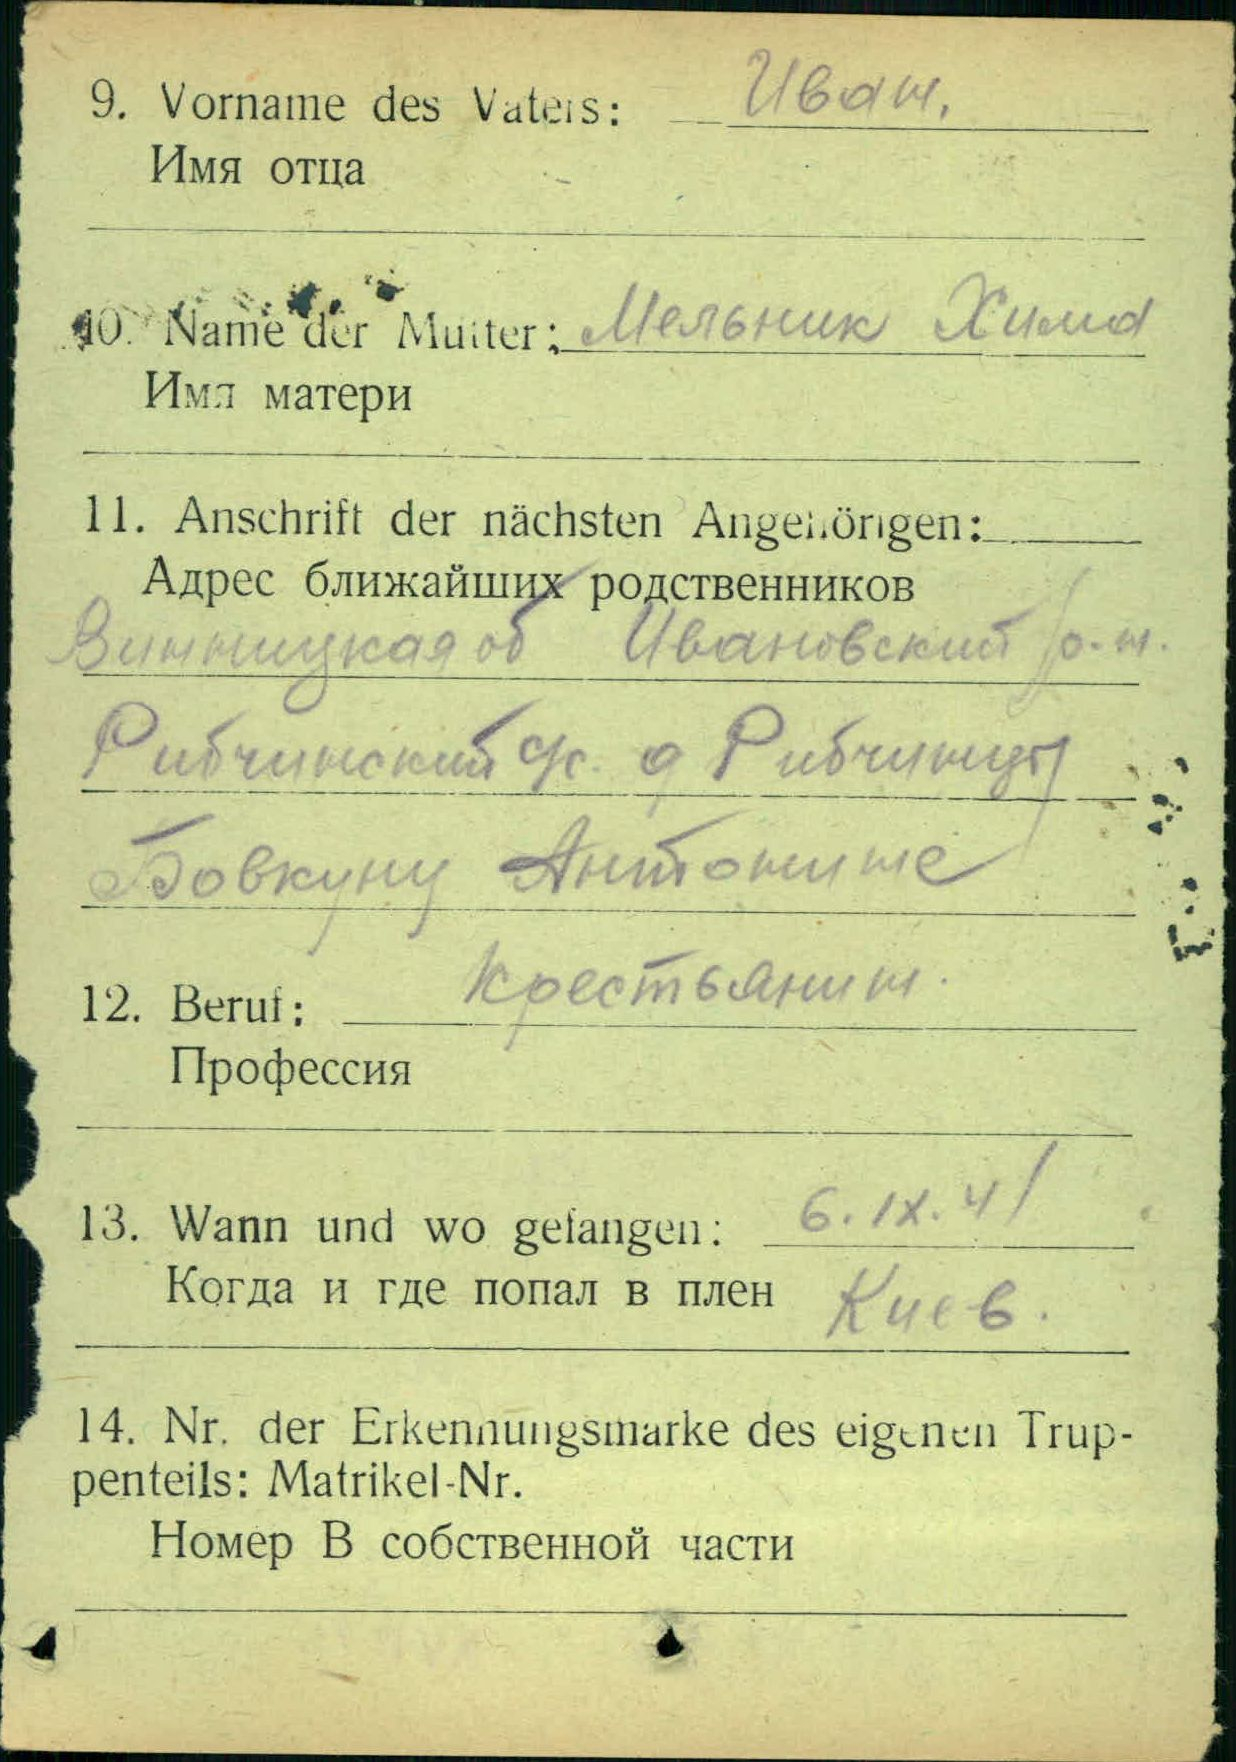 9. Vorname des Vaters: Иван.
Имя отца
10. Name der Mutter: Мельник Химa
Имя матери
11. Anschrift der nächsten Angehörigen:
Адрес ближайших родственников
Винницкая об Ивановский р-н.
Рибчинский с/с. д Рибчинцы
Бовкуну Антонине
12. Beruf: Крестьянин.
Профессия
13. Wann und wo gefangen: 6.IX.41
Когда и где попал в плен Киев.
14. Nr. der Erkennungsmarke des eigenen Trup-
penteils: Matrikel-Nr.
Номер В собственной части